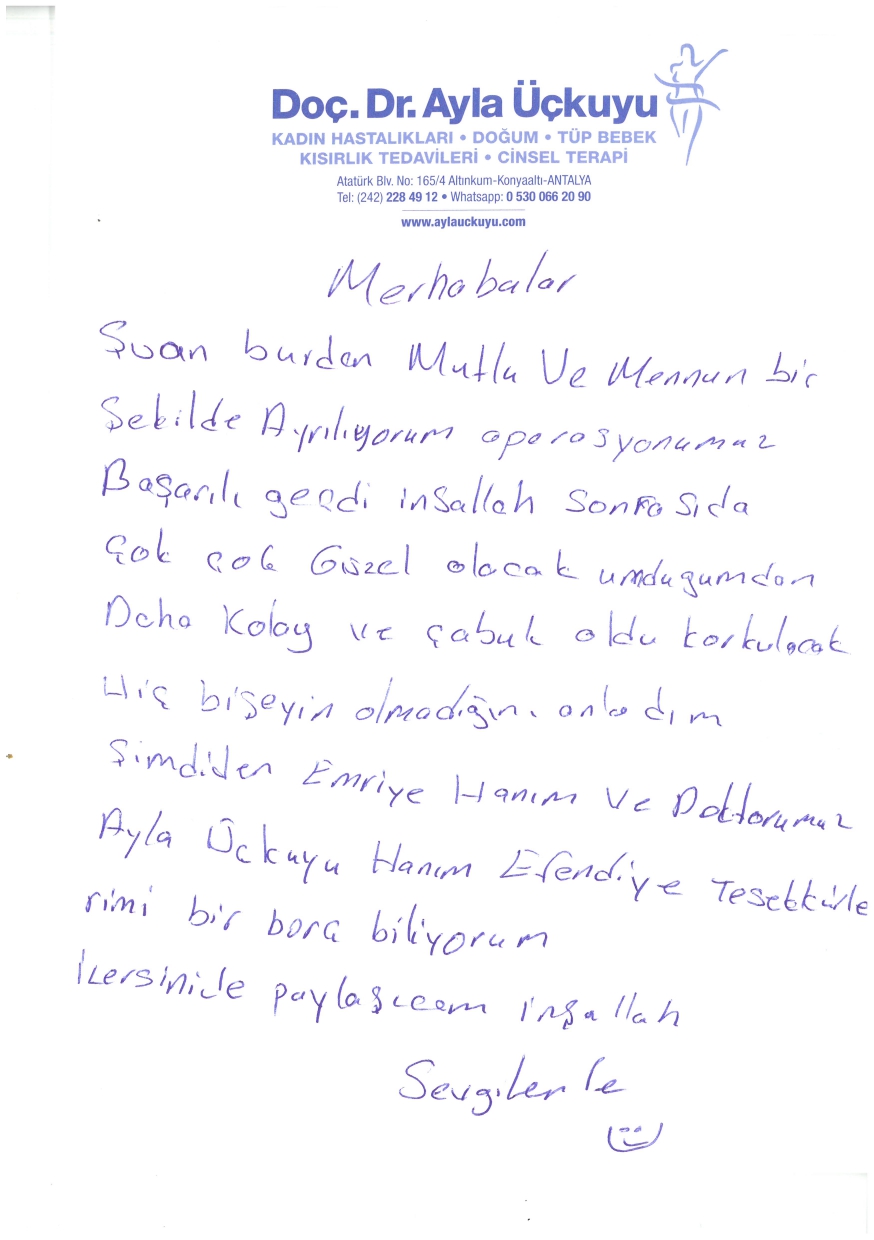 Doç. Dr. Ayla Üçkuyu
KADIN HASTALIKLARI • DOĞUM • TÜP BEBEK
KISIRLIK TEDAVİLERİ • CİNSEL TERAPİ
Atatürk Blv. No: 165/4 Altınkum-Konyaaltı-ANTALYA
Tel: (242) 228 49 12 • Whatsapp: 0 530 066 20 90
www.aylauckuyu.com
Merhabalar
Şuan burdan Mutlu Ve Memnun bir
Şekilde Ayrılıyorum oparasyonumuz
Başarılı geçdi inşallah sonrasıda
Çok çok Güzel olacak umduğumdan
Daha Kolay ve çabuk oldu korkulacak
Hiç bişeyin olmadığını anladım
Şimdiden Emriye Hanım Ve Doktorumuz
Ayla Üçkuyu Hanım Efendiye Teşekkürle
rimi bir borç biliyorum
İlersinide paylaşıcam inşallah
Sevgilerle